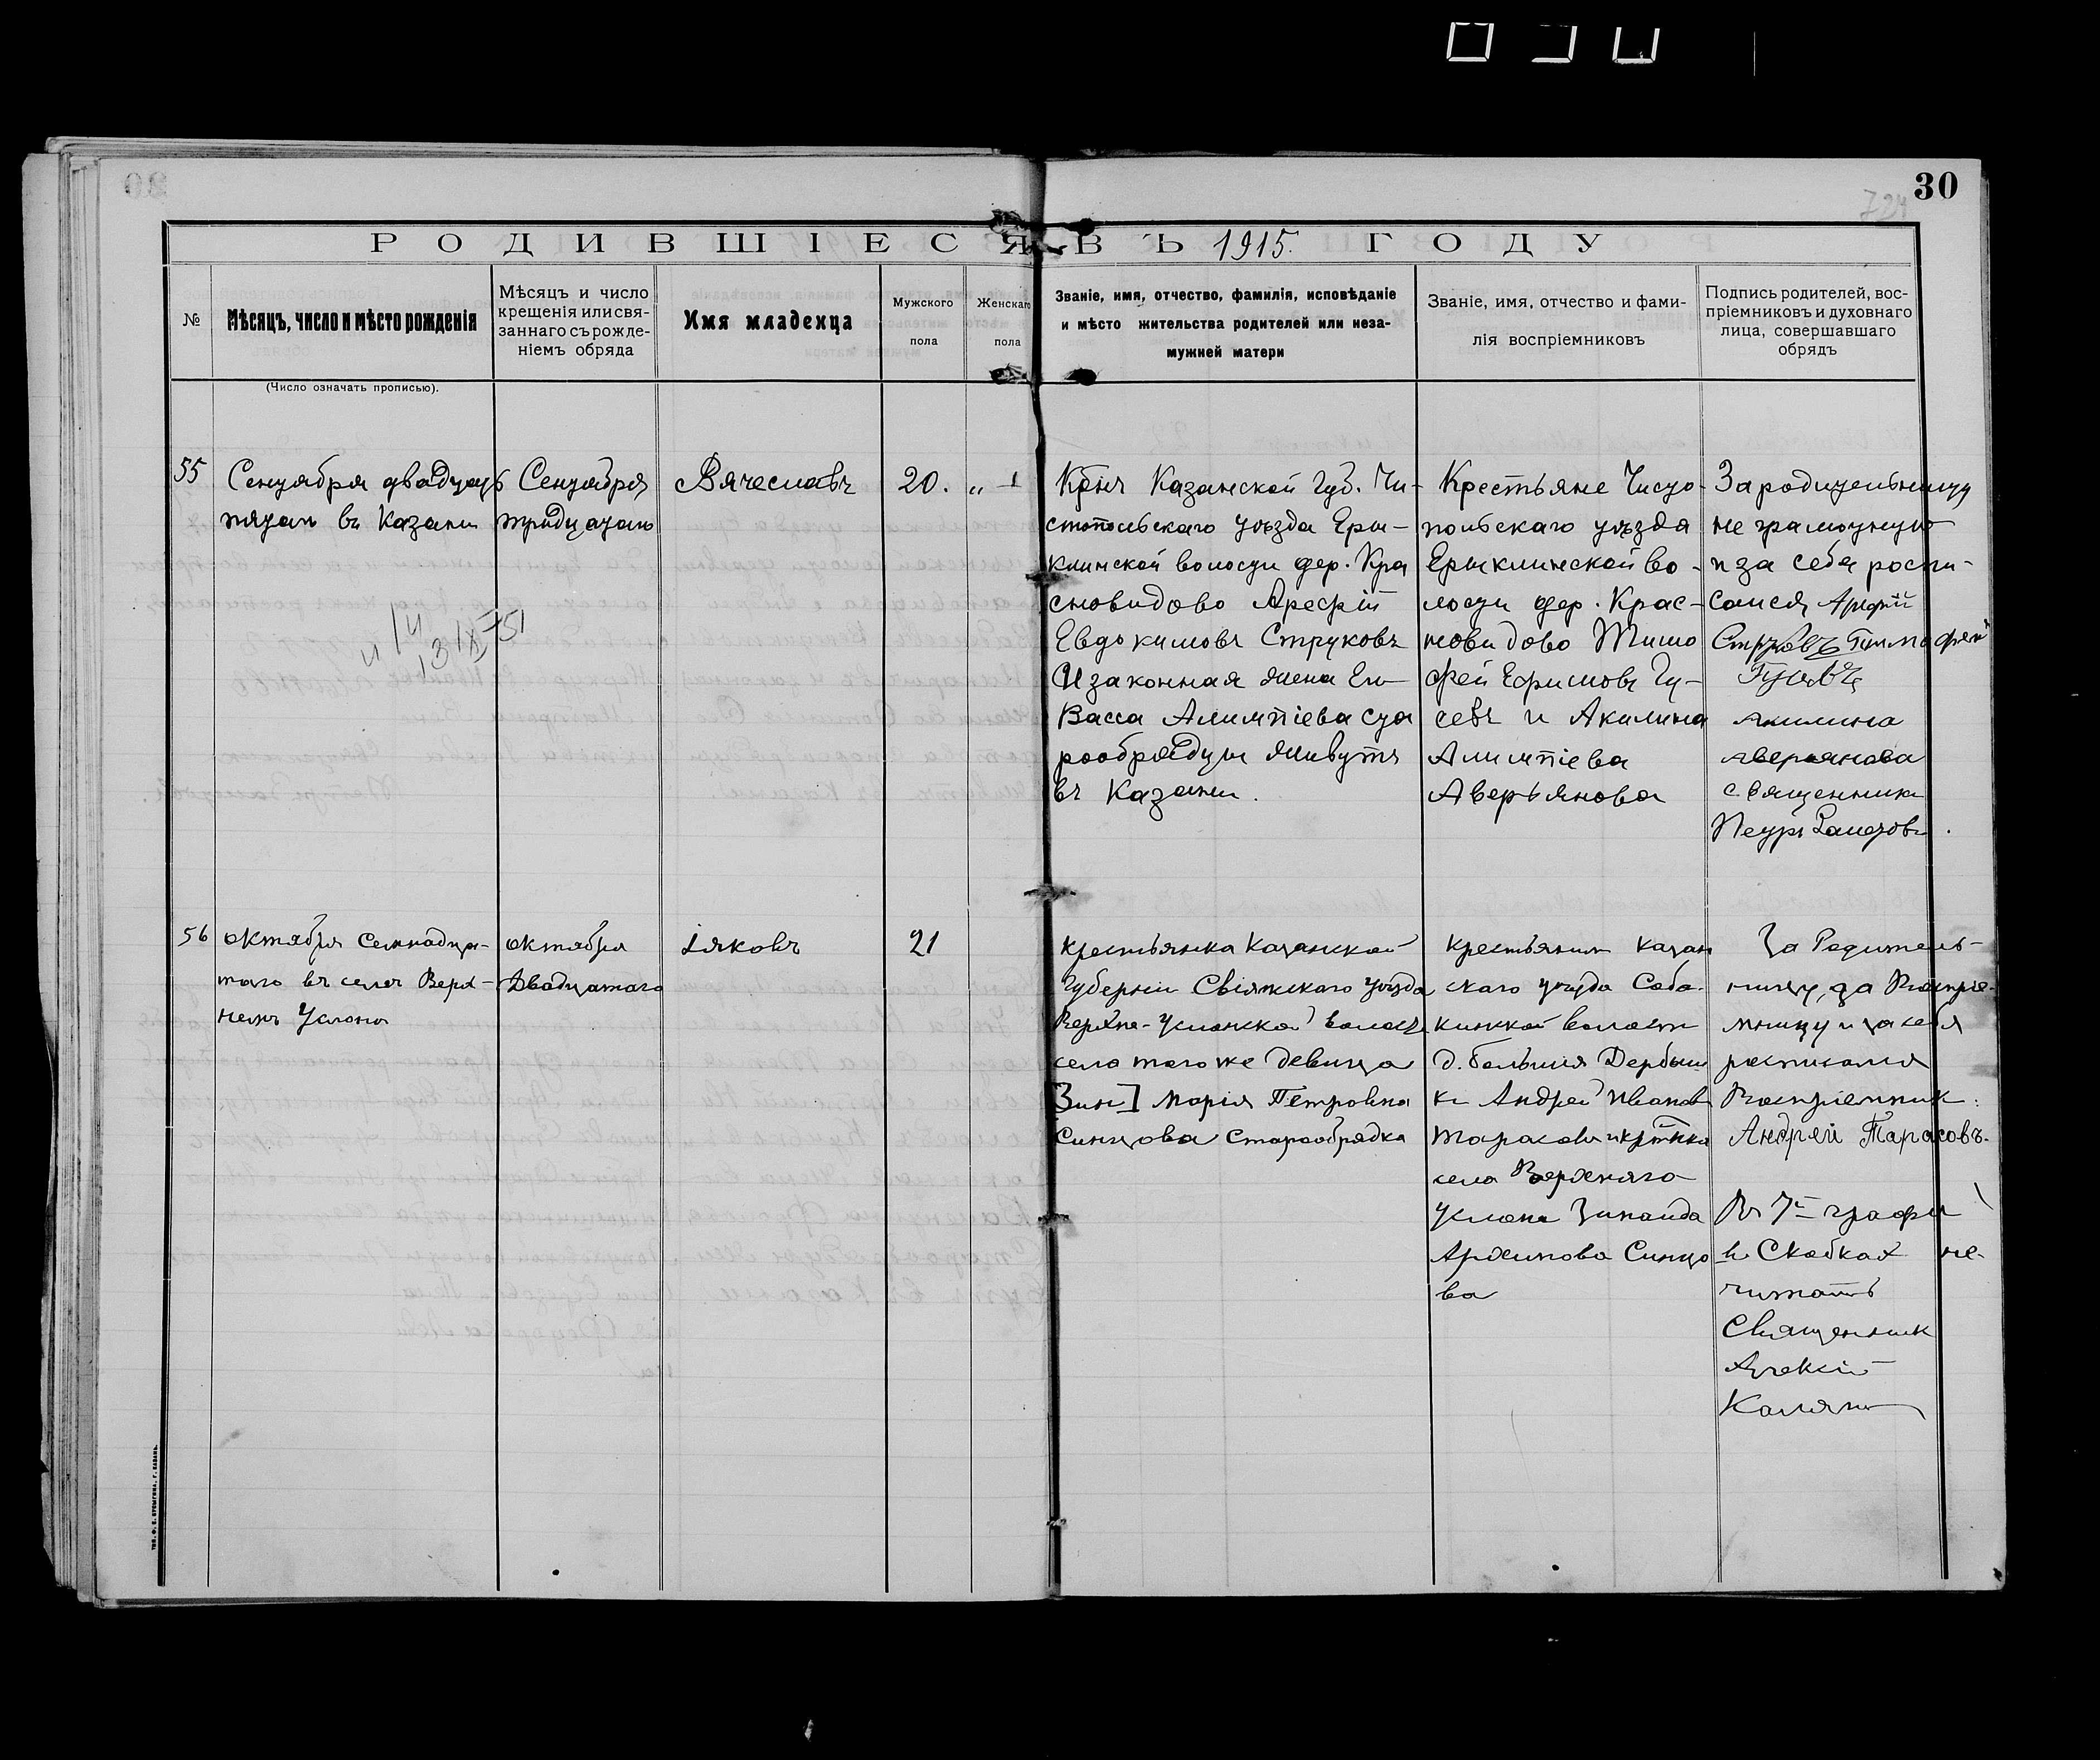 30
724
РОДИВШІЕСЯ ВЪ 1915. ГОДУ
№
Мѣсяцъ, число и мѣсто рожденія
(Число означать прописью).
Мѣсяцъ и число
крещенія или свя-
заннаго съ рожде-
ніемъ обряда
Имя младенца
Мужского
пола
Женскаго
пола
Званіе, имя, отчество, фамилія, исповѣданіе
и мѣсто жительства родителей или неза-
мужней матери
Званіе, имя, отчество и фами-
лія воспріемниковъ
Подпись родителей, вос-
пріемниковъ и духовнаго
лица, совершавшаго
обрядъ
55
Сентября двадцать
пятаго въ Казани
Сентября
тридцатаго
Вячеславъ
20.
Крнъ Казанской Губ. Чи-
стопольскаго уѣзда Еры-
клинской волости дер. Кра
сновидово Арефій
Евдокимовъ Струковъ
И законная жена Ею
Васса Алимпіева ста
рообрядцы живутъ
въ Казани.
Крестьяне Чисто-
польскаго уѣзда
Ерыклинской во-
лости дер. Крас-
новидово Тимо
фей Ефимовъ Гу-
севъ и Акилина
Алимпіева
Аверьянова
За родительницу
не грамотную
и за себя роспи-
сался Арефій
Струковъ Тимофей
Гусевъ
Акилина
Аверьянова
священникъ
Петръ Залетовъ.
56
октября семнадца-
таго въ селе Верх-
немъ Услоне
октября
Двадцатаго
іяковъ
21
крестьянка Казанской
Губерніи Свіяжскаго Уѣзда
Верхне-Услонской волости
села того же девица
[Зин] Марія Петровна
Синцова старообрядка
крестьянин Казан
скаго уѣзда Соба-
кинской волости
д. Большія Дербыш
ки Андрей Иванов
Тарасовъ и кртнка
села Верхняго
Услона Зинаида
Архипова Синцо
ва
За Родитель-
ницу, за Воспріе-
мницу и за себя
росписался
Воспріемник:
Андрей Тарасовъ.
Въ 7й графе
въ Скобках не-
читать
Священник
Алексій
Калягин